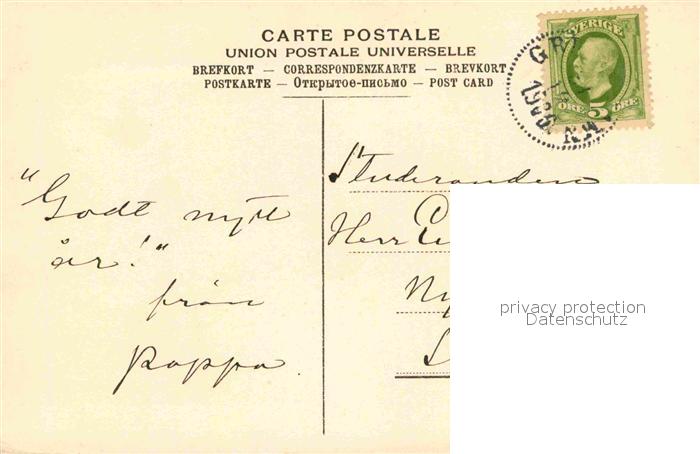 CARTE POSTALE
UNION POSTALE UNIVERSELLE
BREFKORT — CORRESPONDENZKARTE — BREVKORT
POSTKARTE — Открытое-письмо — POST CARD
SVERIGE
5
ÖRE ÖRE
"Godt nytt
år!"
från
pappa.
Studeranden
Herr
privacy protection
Datenschutz